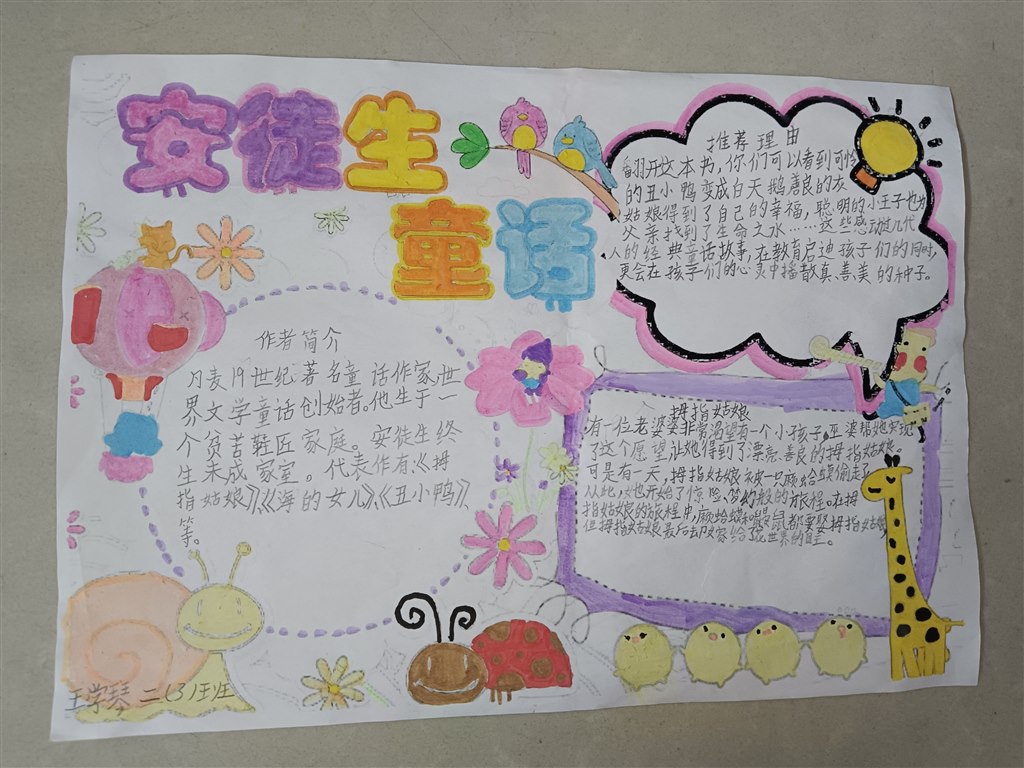 安徒生
童话
推荐理由
翻开这本书，你们可以看到可怜
的丑小鸭变成白天鹅善良的灰
姑娘得到了自己的幸福，聪明的小王子也为
父亲找到了生命之水……这些感动几代
人的经典童话故事，在教育启迪孩子们的同时，
更会在孩子们的心灵中播散真、善、美的种子。
作者简介
丹麦19世纪著名童话作家，世
界文学童话创始者。他生于一
个贫苦鞋匠家庭。安徒生终
生未成家室。代表作有：《拇
指姑娘》《海的女儿》《丑小鸭》
等。
拇指姑娘
有一位老婆婆非常渴望有一个小孩子，巫婆帮她实现
了这个愿望让她得到了漂亮、善良的拇指姑娘。
可是有一天，拇指姑娘被一只癞蛤蟆偷走了
从此，她也开始了惊险、梦幻般的旅程。在拇
指姑娘的旅程中，癞蛤蟆和鼹鼠都要娶拇指姑娘，
但拇指姑娘最后却嫁给了花世界的国王。
王学琴 二(3)班